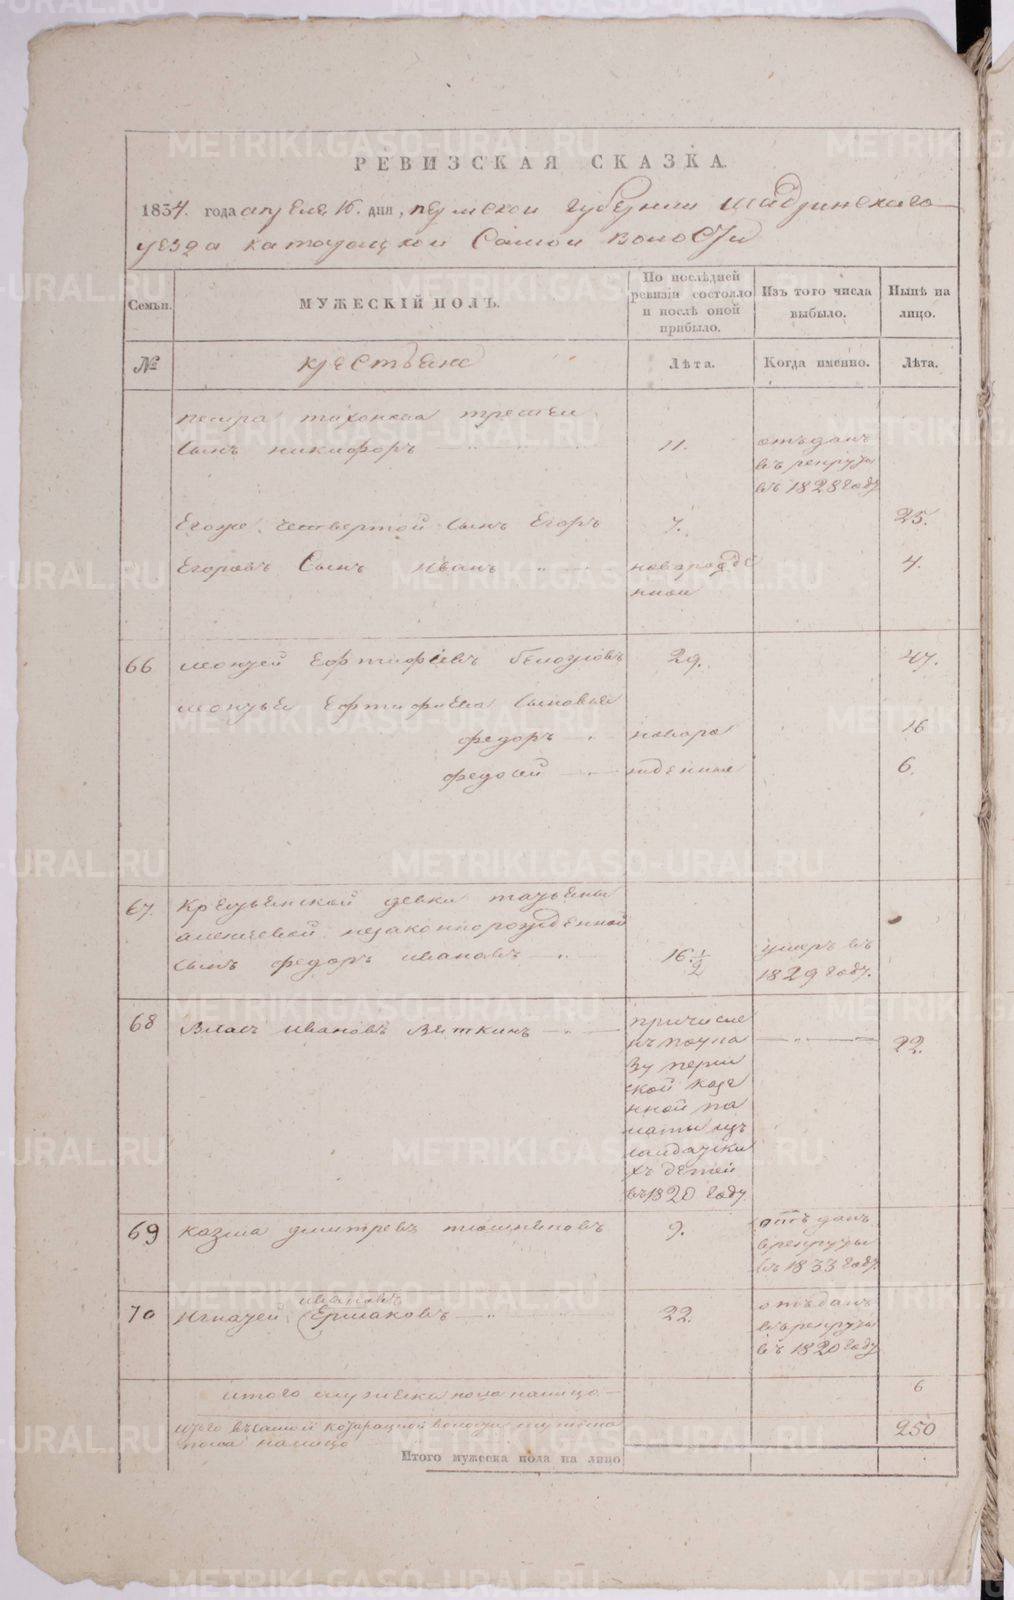 РЕВИЗСКАЯ СКАЗКА.
1834. года апреля 16. дня, пермской губернии шадринскаго
уезда катайской самой волости
Семьи.
МУЖЕСКІЙ ПОЛЪ.
По послѣдней ревизіи состояло и послѣ оной прибыло.
Изъ того числа выбыло.
Нынѣ на лицо.
№
крестьяне
Лѣта.
Когда именно.
Лѣта.
петра тихонова третей
сынъ никифоръ 11. отъданъ
въ рекруты
въ 1828 году
Егоже четвертой сынъ Егоръ 7. 25.
Егоровъ сынъ Иванъ новорожде 4.
нной
66 мокѣй Ефтифѣевъ белоусовъ 29. 47.
мокѣя Ефтифиева сыновья
федоръ новоро 16
федосей жденныя 6.
67. крестьянской девки татьяны
алексѣевой незаконнорожденной
сынъ федоръ ивановъ 16.1/2 умеръ въ
1829 году.
68 Власъ ивановъ Вяткинъ причисле 22.
нъ по ука
зу перм
ской казе
нной па
латы изъ
солдатски
хъ детей
въ 1820 году
69 козма дмитревъ 9. отъданъ
в рекруты
въ 1833 году.
70 Игнатей ивановъ Ермаковъ 22. отъданъ
въ рекруты
въ 1820 году
итого мужеска пола налицо 6
итого въ самой волости мужеска
пола налицо 250
Итого мужеска пола на лицо
METRIKI.GASO-URAL.RU